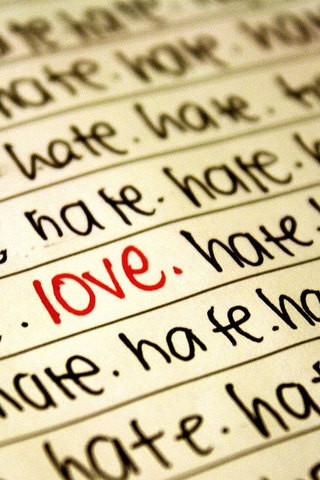 hate. hate.
hate. hate. ha
hate. hate.
hate. hate.
. love. hate.
hate. hate. ha
hate. hat